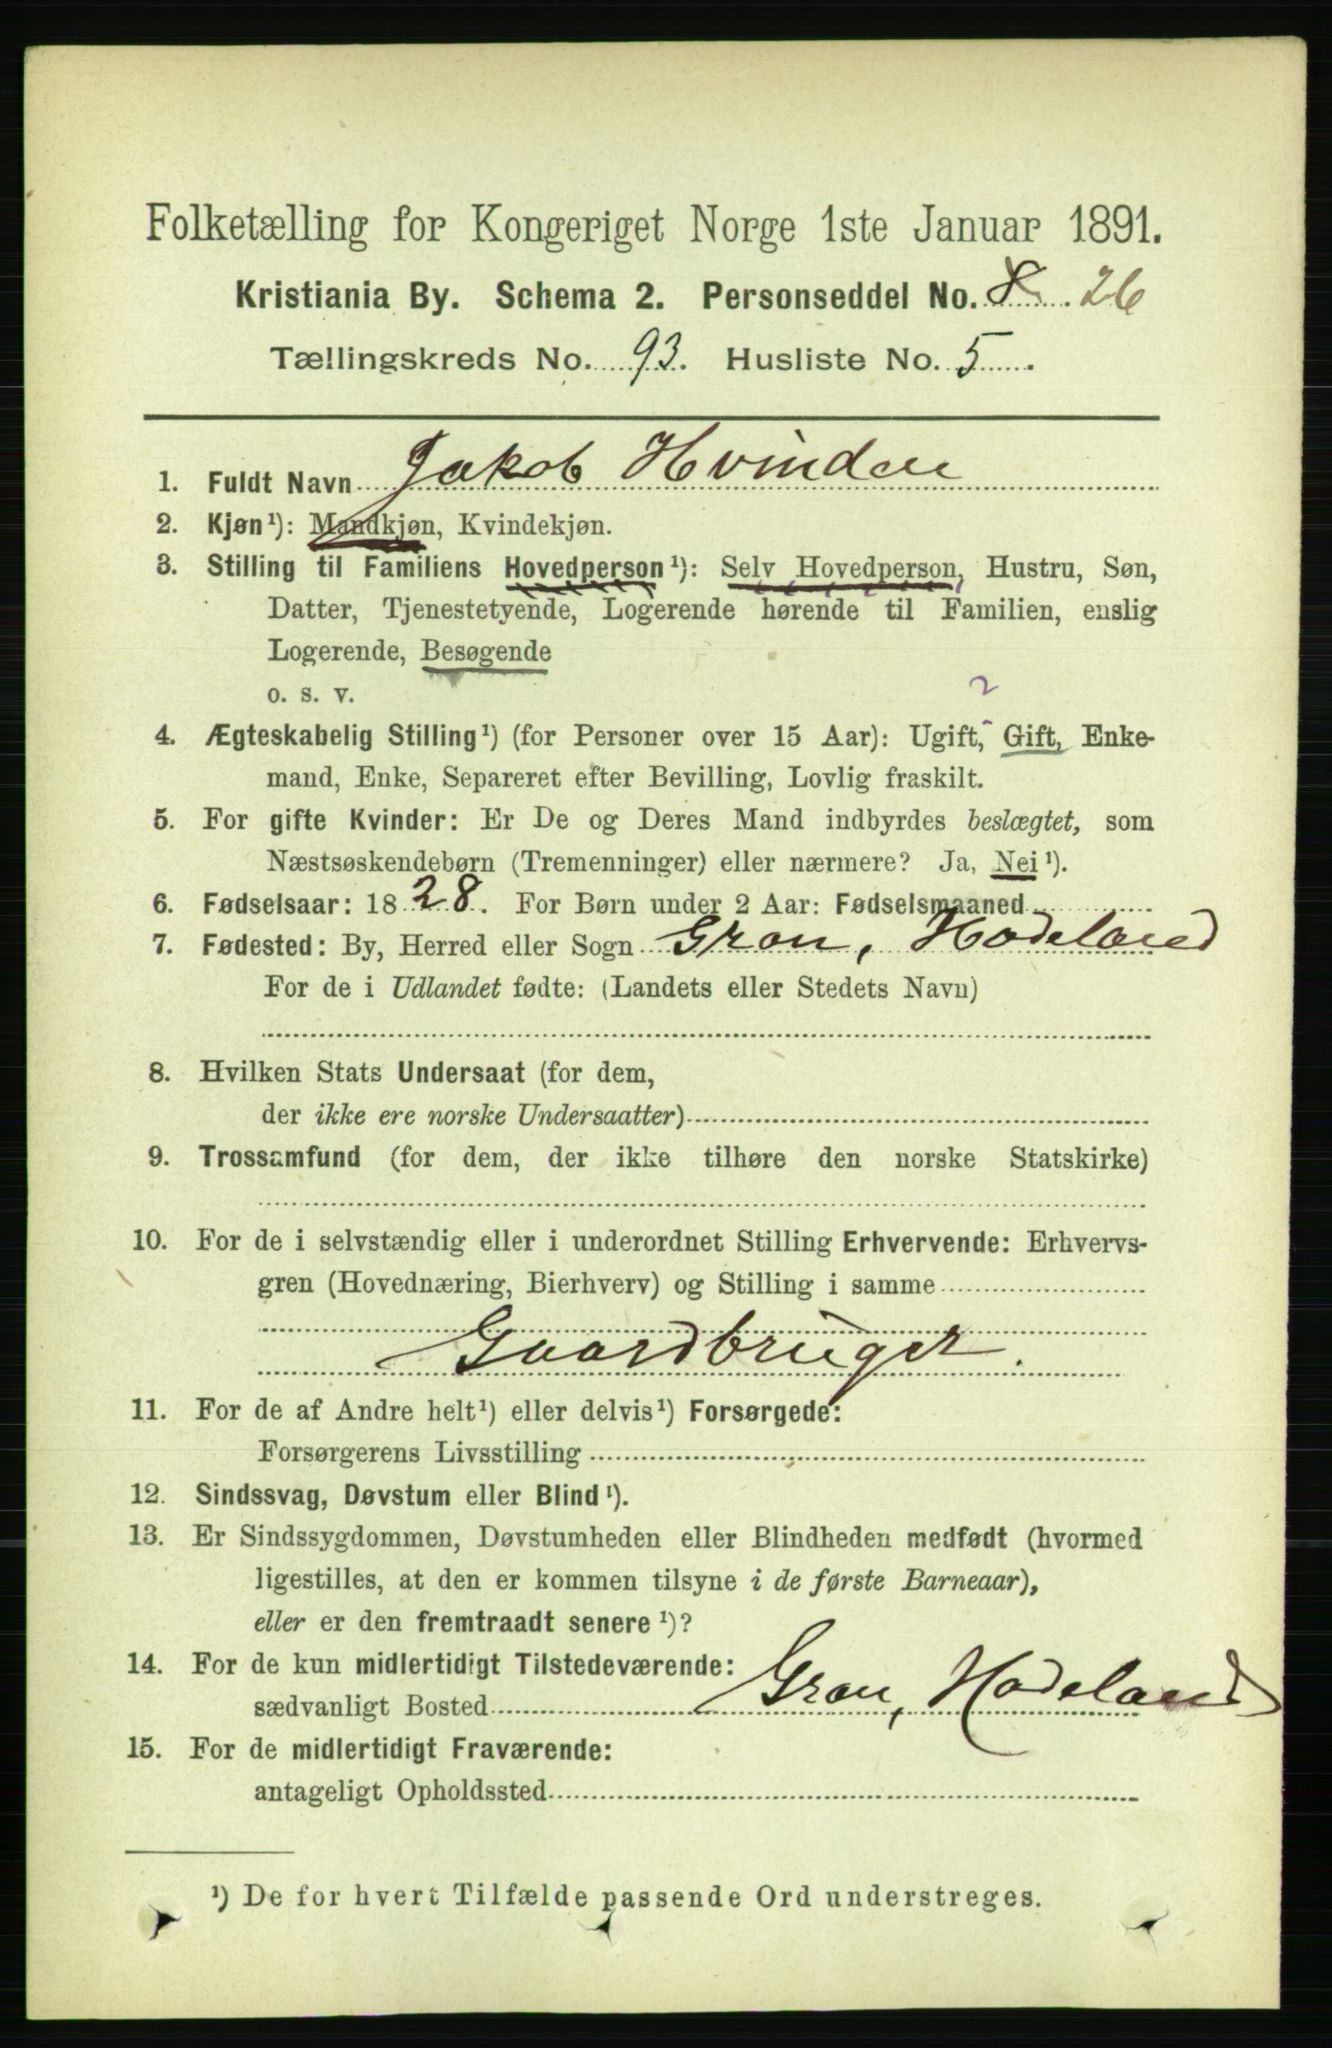 Folketælling for Kongeriget Norge 1ste Januar 1891.
Kristiania By. Schema 2. Personseddel No. 8 26
Tællingskreds No. 93. Husliste No. 5.
1. Fuldt Navn Jakob Hvinden
2. Kjøn¹): Mandkjøn, Kvindekjøn.
3. Stilling til Familiens Hovedperson¹): Selv Hovedperson, Hustru, Søn,
Datter, Tjenestetyende, Logerende hørende til Familien, enslig
Logerende, Besøgende
o. s. v.
2
4. Ægteskabelig Stilling¹) (for Personer over 15 Aar): Ugift, Gift, Enke-
mand, Enke, Separeret efter Bevilling, Lovlig fraskilt.
5. For gifte Kvinder: Er De og Deres Mand indbyrdes beslægtet, som
Næstsøskendebørn (Tremenninger) eller nærmere? Ja, Nei¹).
6. Fødselsaar: 1828. For Børn under 2 Aar: Fødselsmaaned
7. Fødested: By, Herred eller Sogn Gran, Hadeland
For de i Udlandet fødte: (Landets eller Stedets Navn)
8. Hvilken Stats Undersaat (for dem,
der ikke ere norske Undersaatter)
9. Trossamfund (for dem, der ikke tilhøre den norske Statskirke)
10. For de i selvstændig eller i underordnet Stilling Erhvervende: Erhvervs-
gren (Hovednæring, Bierhverv) og Stilling i samme
Gaardbruger.
11. For de af Andre helt¹) eller delvis¹) Forsørgede:
Forsørgerens Livsstilling
12. Sindssvag, Døvstum eller Blind¹).
13. Er Sindssygdommen, Døvstumheden eller Blindheden medfødt (hvormed
ligestilles, at den er kommen tilsyne i de første Barneaar),
eller er den fremtraadt senere¹)?
14. For de kun midlertidigt Tilstedeværende:
sædvanligt Bosted Gran, Hadeland
15. For de midlertidigt Fraværende:
antageligt Opholdssted
¹) De for hvert Tilfælde passende Ord understreges.